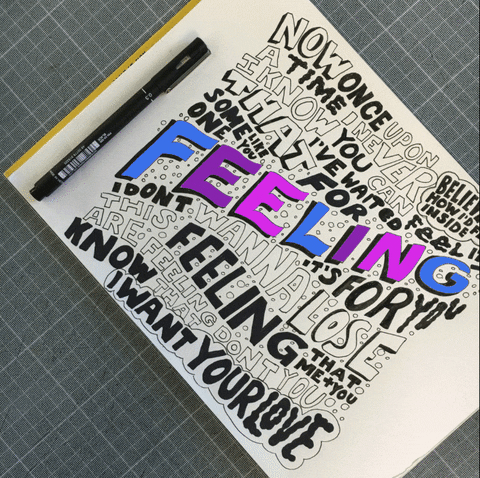 NOW ONCE UPON
A TIME I NEVER
I KNOW YOU CAN
THAT I'VE WAITED
SOMEONE LIKE YOU FOR
HOW I'D
INSIDE
FEELING
IT'S FOR YOU
I DON'T WANNA LOSE
THIS FEELING THAT
ARE FEELING ME + YOU
KNOW THAT DON'T YOU
I WANT YOUR LOVE